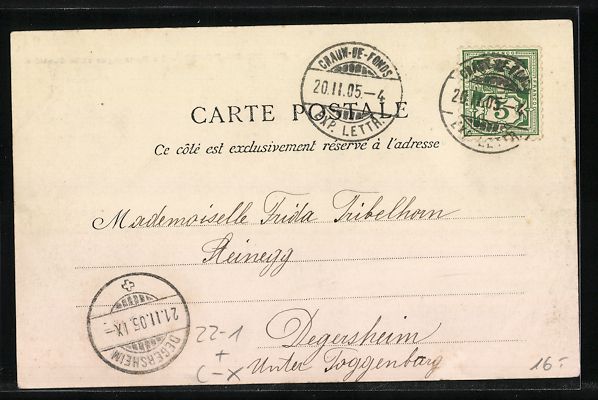 CHAUX-DE-FONDS
20.II.05.-4
EXP. LETTR.
CHAUX-DE-FONDS
20.II.05.-4
EXP. LETTR.
5
CARTE POSTALE
Ce côté est exclusivement réservé à l'adresse
Mademoiselle Frida Tribelhorn
Steinegg
Degersheim
Unter Toggenburg
21.II.05.IX-
DEGERSHEIM
22-1
+
C-X
16.-